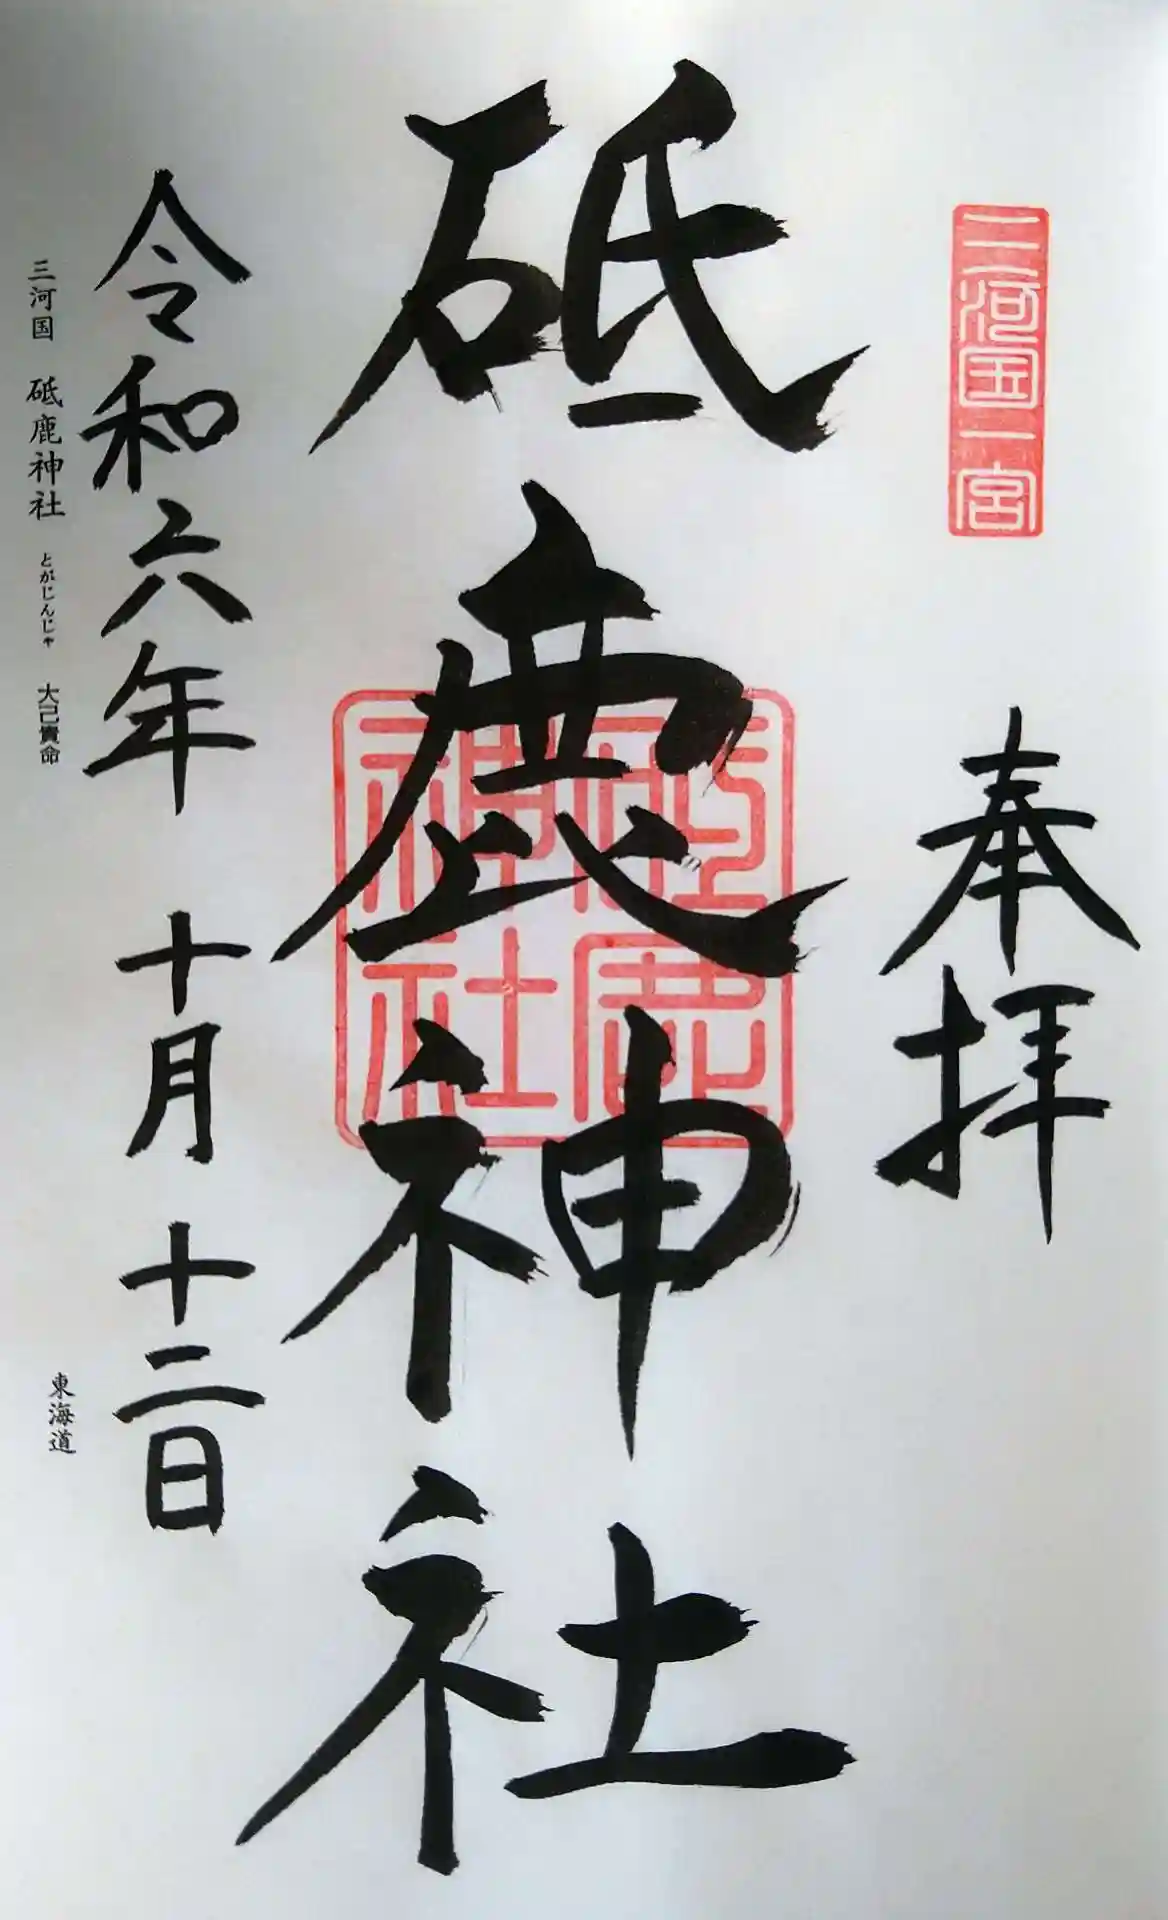 三河国一宮
奉拝
砥鹿神社
砥鹿神社
令和六年 十月 十二日
三河国 砥鹿神社 とがじんじゃ 大己貴命 東海道